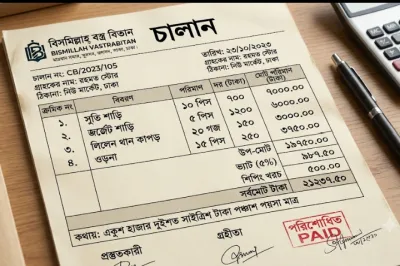 বিসমিল্লাহ্ বস্ত্র বিতান
BISMILLAH VASTRABITAN
চালান
চালান নং: CB/2023/105
তারিখ: ২৩/১০/২০২৩
গ্রাহকের নাম: রহমত স্টোর
গ্রাহকের নাম: রহমত স্টোর
ঠিকানা: নিউ মার্কেট, ঢাকা
ঠিকানা: নিউ মার্কেট, ঢাকা
ক্রমিক নং বিবরণ পরিমাণ দর (টাকা) মোট পরিমাণ (টাকা)
১. সুতি শাড়ি ১০ পিস ৭০০ ৭০০০.০০
২. জর্জেট শাড়ি ৫ পিস ১২০০ ৬০০০.০০
৩. লিলেন থান কাপড় ২০ গজ ১৫০ ৩০০০.০০
৪. ওড়না ১৫ পিস ২৫০ ৩৭৫০.০০
উপ-মোট ১৯৭৫০.০০
ভ্যাট (৫%) ৯৮৭.৫০
শিপিং খরচ ৫০০.০০
সর্বমোট টাকা ২১২৩৭.৫০
কথায়: একুশ হাজার দুইশত সাইত্রিশ টাকা পঞ্চাশ পয়সা মাত্র
প্রস্তুতকারী গ্রহীতা
পরিশোধিত
PAID